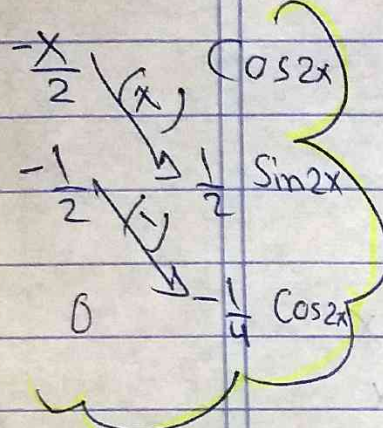 -x/2 (x) Cos2x
-1/2 (-) 1/2 Sin2x
0 -1/4 Cos2x